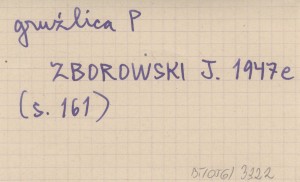 gruźlica P
ZBOROWSKI J. 1947e
(s. 161)
3222